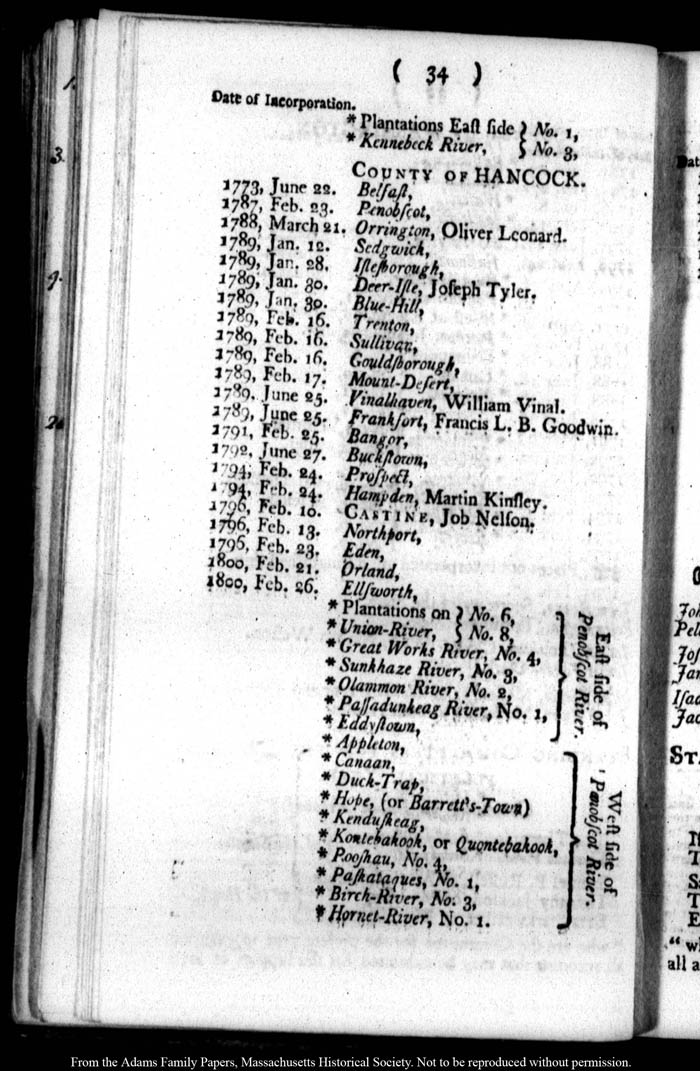 ( 34 )
Date of Incorporation.
* Plantations Eaſt ſide } No. 1,
* Kennebeck River, } No. 3,
COUNTY OF HANCOCK.
1773, June 22. Belfaſt,
1787, Feb. 23. Penobſcot,
1788, March 21. Orrington, Oliver Leonard.
1789, Jan. 12. Sedgwick,
1789, Jan. 28. Iſleſborough,
1789, Jan. 30. Deer-Iſle, Joſeph Tyler.
1789, Jan. 30. Blue-Hill,
1789, Feb. 16. Trenton,
1789, Feb. 16. Sullivan,
1789, Feb. 16. Gouldſborough,
1789, Feb. 17. Mount-Deſert,
1789, June 25. Vinalhaven, William Vinal.
1789, June 25. Frankfort, Francis L. B. Goodwin.
1791, Feb. 25. Bangor,
1792, June 27. Buckſtown,
1794, Feb. 24. Proſpect,
1794, Feb. 24. Hampden, Martin Kinſley.
1796, Feb. 10. CASTINE, Job Nelſon.
1796, Feb. 13. Northport,
1796, Feb. 23. Eden,
1800, Feb. 21. Orland,
1800, Feb. 26. Ellſworth,
* Plantations on } No. 6,
* Union-River, } No. 8,
* Great Works River, No. 4,
* Sunkhaze River, No. 3,
* Olammon River, No. 2,
* Paſſadunkeag River, No. 1,
* Eddyſtown,
Eaſt ſide of
Penobſcot River.
* Appleton,
* Canaan,
* Duck-Trap,
* Hope, (or Barrett's-Town)
* Kenduſkeag,
* Kontebakook, or Quontebakook,
* Pooſhau, No. 4,
* Paſkataques, No. 1,
* Birch-River, No. 3,
* Hornet-River, No. 1.
Weſt ſide of
Penobſcot River.
From the Adams Family Papers, Massachusetts Historical Society. Not to be reproduced without permission.